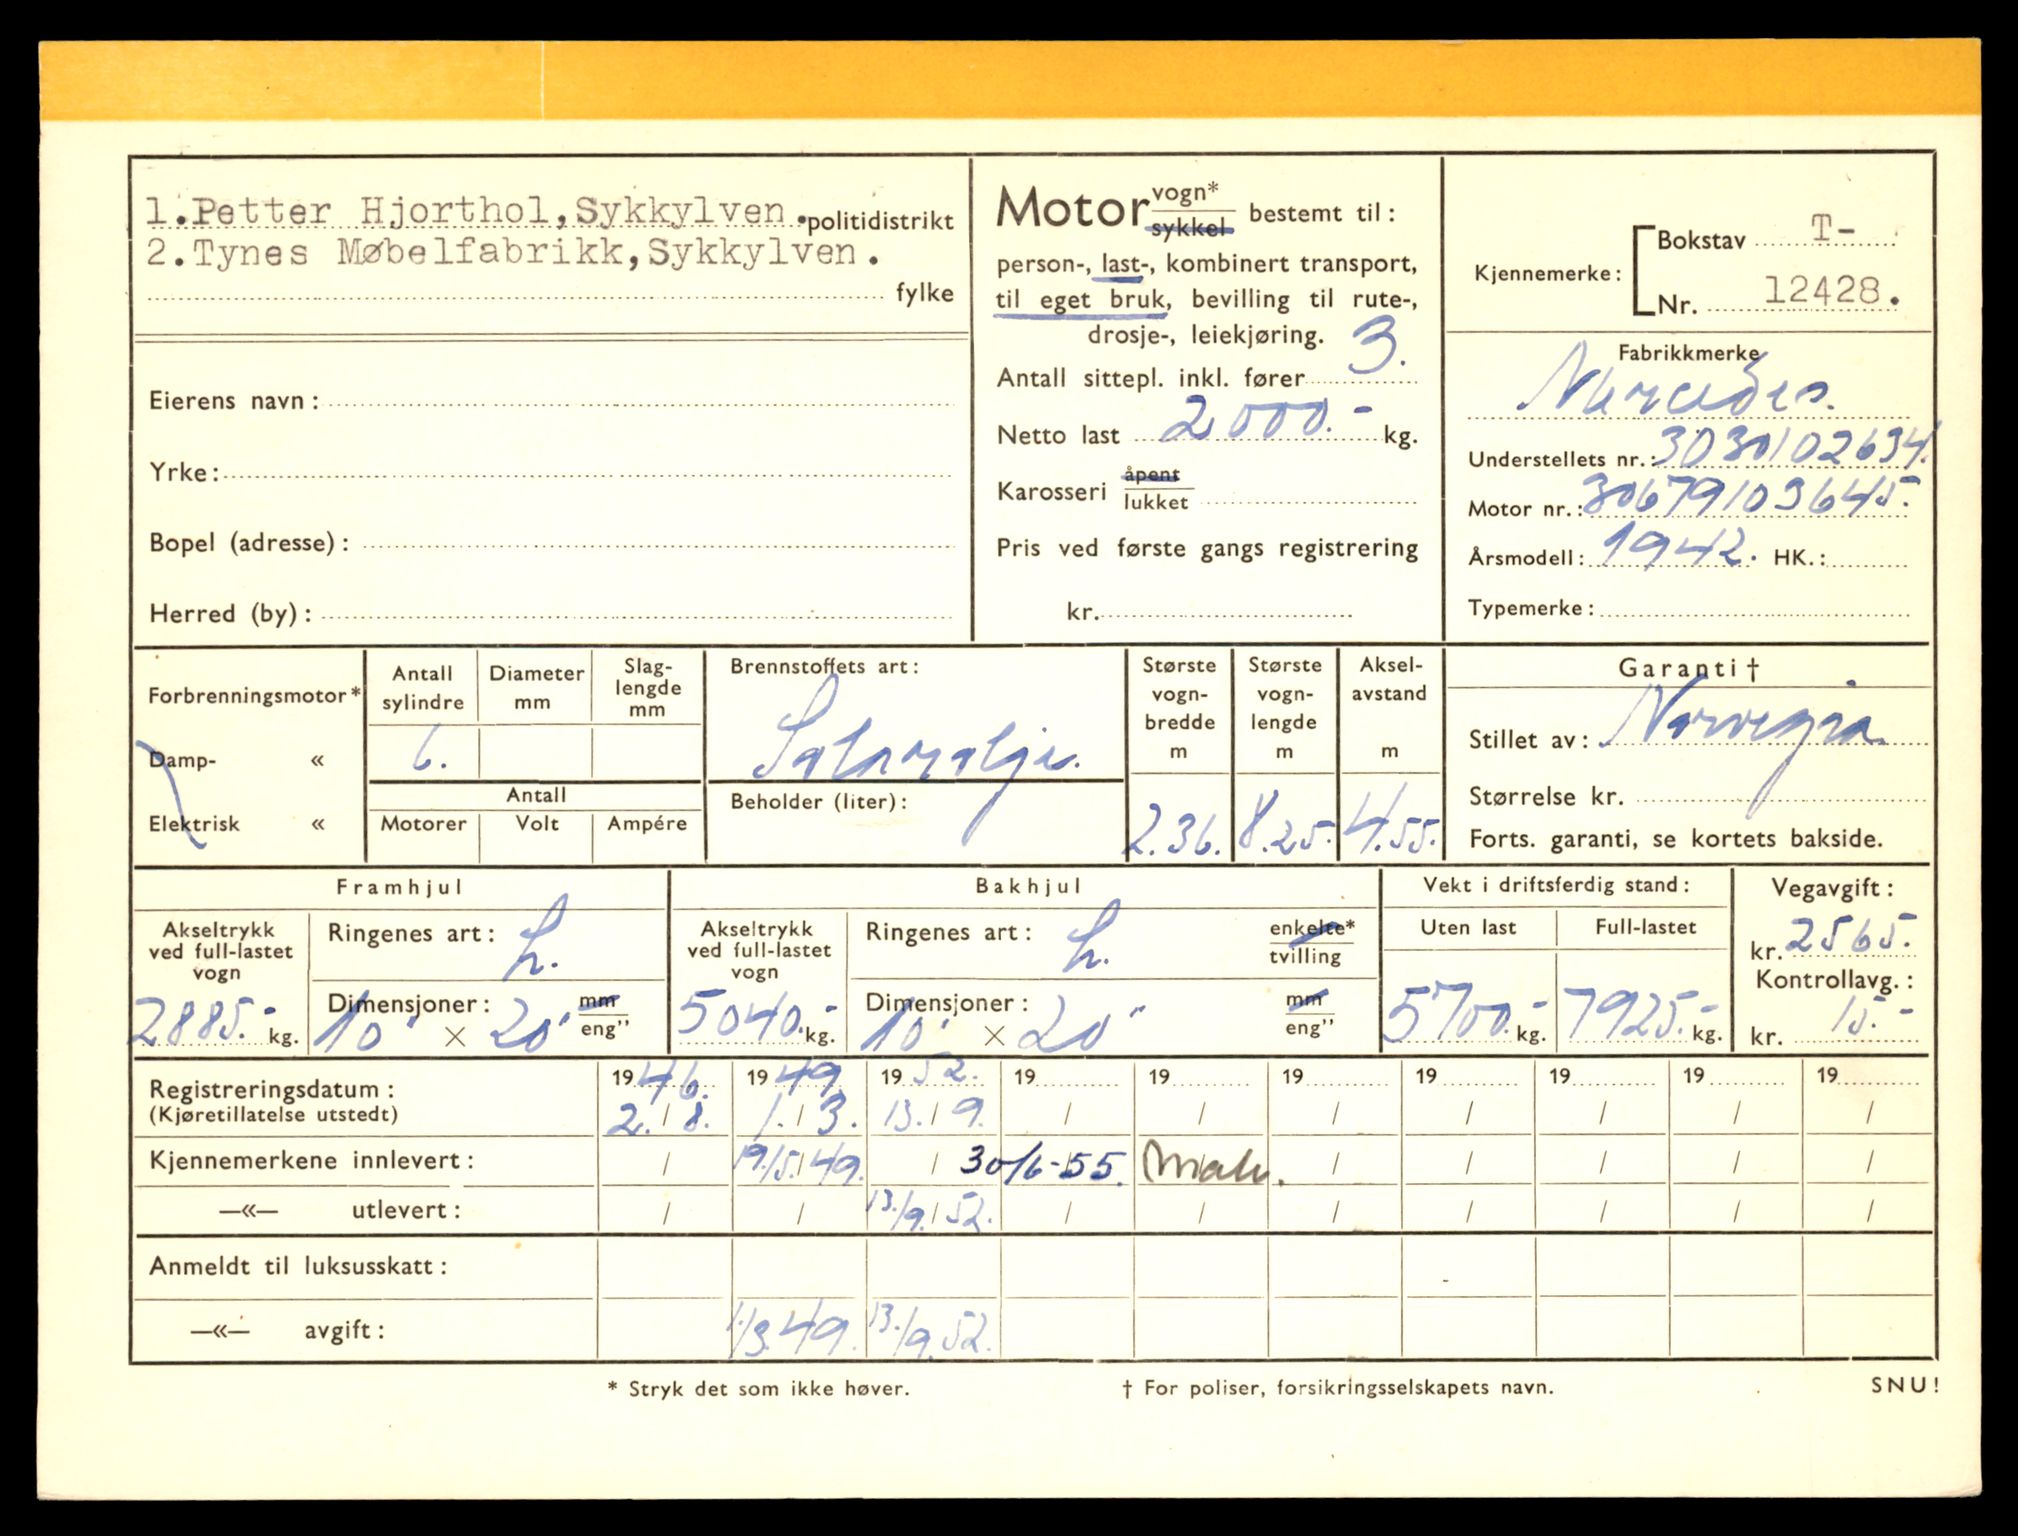 1.Petter Hjorthol, Sykkylven. politidistrikt
2.Tynes Møbelfabrikk, Sykkylven.
fylke
Eierens navn:
Yrke:
Bopel (adresse):
Herred (by):
Motor vogn* / sykkel bestemt til:
person-, last-, kombinert transport,
til eget bruk, bevilling til rute-,
drosje-, leiekjøring.
Antall sittepl. inkl. fører 3.
Netto last 2000.- kg.
Karosseri åpent / lukket
Pris ved første gangs registrering
kr.
Kjennemerke: Bokstav T-
Nr. 12428.
Fabrikkmerke
Mercedes.
Understellets nr.: 3030102634.
Motor nr.: 30679103645.-
Årsmodell: 1942. HK.:
Typemerke:
Forbrenningsmotor*
Damp- «
Elektrisk «
Antall sylindre
6.
Diameter mm
Slag-lengde mm
Antall
Motorer Volt Ampére
Brennstoffets art:
Solarolje.
Beholder (liter):
Største vogn-bredde m
2.36.
Største vogn-lengde m
8.25.
Aksel-avstand m
4.55.
Garanti †
Stillet av: Norvegia
Størrelse kr.
Forts. garanti, se kortets bakside.
Framhjul
Akseltrykk ved full-lastet vogn
2885.- kg.
Ringenes art: L.
Dimensjoner: mm / eng”
10" × 20"
Bakhjul
Akseltrykk ved full-lastet vogn
5040.- kg.
Ringenes art: L. enkelte* / tvilling
Dimensjoner: mm / eng”
10" × 20"
Vekt i driftsferdig stand:
Uten last Full-lastet
5700.- kg. 7925.- kg.
Vegavgift:
kr. 2565.-
Kontrollavg.:
kr. 15.-
Registreringsdatum: 1946. 1949 1952. 19 19 19 19 19 19 19
(Kjøretillatelse utstedt) 2./8. 1./3. 13./9. / / / / / / /
Kjennemerkene innlevert: / 19./5.49. / 30/6-55. / / / / /
—«— utlevert: / / 13./9.52. / / / / / / /
Anmeldt til luksusskatt:
—«— avgift: 1./3.49. 13./9.52.
* Stryk det som ikke høver.
† For poliser, forsikringsselskapets navn.
SNU!